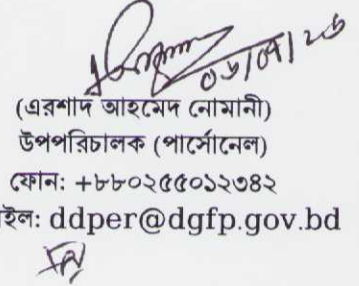 (এরশাদ আহমেদ নোমানী)
উপপরিচালক (পার্সোনেল)
ফোন: +৮৮০২৫৫০১২৩৪২
ইল: ddper@dgfp.gov.bd